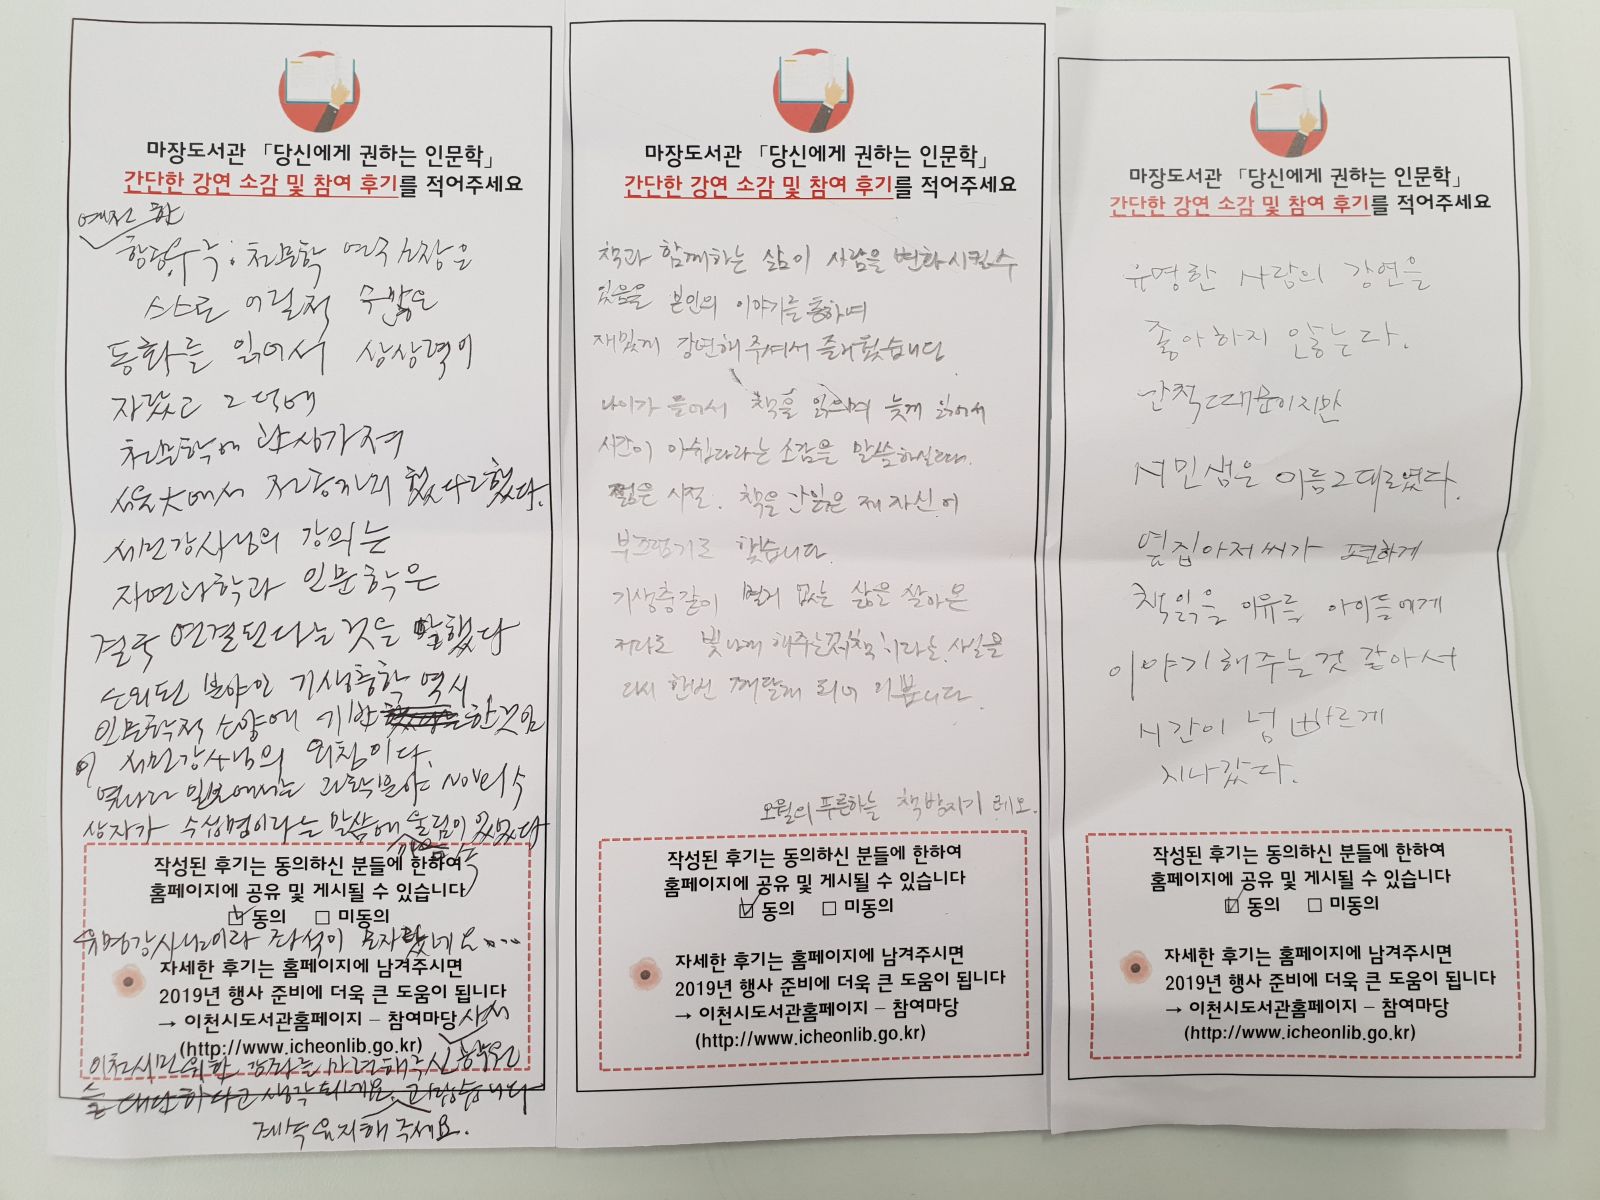 마장도서관 「당신에게 권하는 인문학」
간단한 강연 소감 및 참여 후기를 적어주세요
예전 한
천문학 연구소장은
스스로 어릴적 수많은
동화를 읽어서 상상력이
자랐고 그 덕에
천문학에 관심가져
서울大에서 전공까지 했다고 했다.
서민강사님의 강의는
자연과학과 인문학은
결국 연결된다는 것을 말했다
소외된 분야인 기생충학 역시
인문학적 소양에 기반한 것임
이 서민강사님의 외침이다.
옆나라 일본에서는 과학분야 노벨수
상자가 수십명이라는 말씀에 울림이 있었다
작성된 후기는 동의하신 분들에 한하여
홈페이지에 공유 및 게시될 수 있습니다
☑ 동의 □ 미동의
유명강사님이라 좌석이 모자랐네요....
자세한 후기는 홈페이지에 남겨주시면
2019년 행사 준비에 더욱 큰 도움이 됩니다
→ 이천시도서관홈페이지 – 참여마당
(http://www.icheonlib.go.kr)
이천시민 위한 강좌를 마련해주신
대단하다고 생각되게요. 고맙습니다
계속 유지해 주세요.
마장도서관 「당신에게 권하는 인문학」
간단한 강연 소감 및 참여 후기를 적어주세요
책과 함께하는 삶이 사람을 변화시킬수
있음을 본인의 이야기를 통하여
재밌게 강연해 주셔서 즐거웠습니다.
나이가 들어서 책을 읽으며 늦게 읽어서
시간이 아쉽다라는 소감을 말씀하실때.
젊은 시절. 책을 안읽은 제 자신이
부끄럽기도 했습니다.
기생충같이 별거 없는 삶을 살아온
저라도 빛나게 해주는 책 이라는 사실을
다시 한번 깨달게 되어 기쁩니다.
오월의 푸른하늘 책방지기 레오.
작성된 후기는 동의하신 분들에 한하여
홈페이지에 공유 및 게시될 수 있습니다
☑ 동의 □ 미동의
자세한 후기는 홈페이지에 남겨주시면
2019년 행사 준비에 더욱 큰 도움이 됩니다
→ 이천시도서관홈페이지 – 참여마당
(http://www.icheonlib.go.kr)
마장도서관 「당신에게 권하는 인문학」
간단한 강연 소감 및 참여 후기를 적어주세요
유명한 사람의 강연을
좋아하지 않는다.
난적때문이지만
서민샘은 이름그대로였다.
옆집아저씨가 편하게
책읽을 이유를 아이들에게
이야기해주는것 같아서
시간이 넘 빠르게
지나갔다.
작성된 후기는 동의하신 분들에 한하여
홈페이지에 공유 및 게시될 수 있습니다
☑ 동의 □ 미동의
자세한 후기는 홈페이지에 남겨주시면
2019년 행사 준비에 더욱 큰 도움이 됩니다
→ 이천시도서관홈페이지 – 참여마당
(http://www.icheonlib.go.kr)